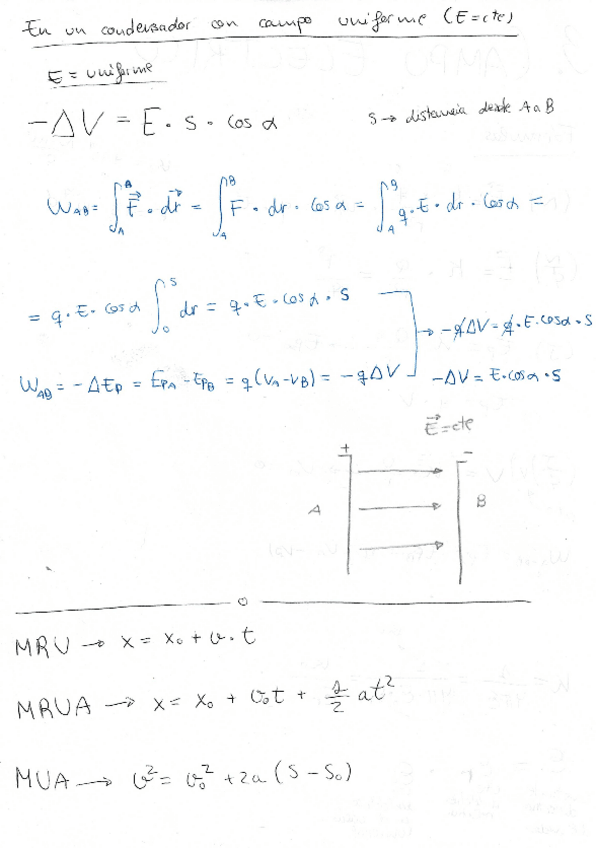 En un condensador con campo uniforme (E=cte)
E = uniforme
-ΔV = E · s · cos α
s → distancia desde A a B
W_AB = ∫_A^B F⃗ · dr⃗ = ∫_A^B F · dr · cos α = ∫_A^B q · E · dr · cos α =
= q · E · cos α ∫_0^s dr = q · E · cos α · s
→ -qΔV = q · E · cos α · s
W_AB = -ΔEp = EpA - EpB = q(VA - VB) = -qΔV
-ΔV = E · cos α · s
E⃗ = cte
+ -
A B
MRU → x = x₀ + v · t
MRUA → x = x₀ + v₀t + 1/2 at²
MUA → v² = v₀² + 2a (s - s₀)